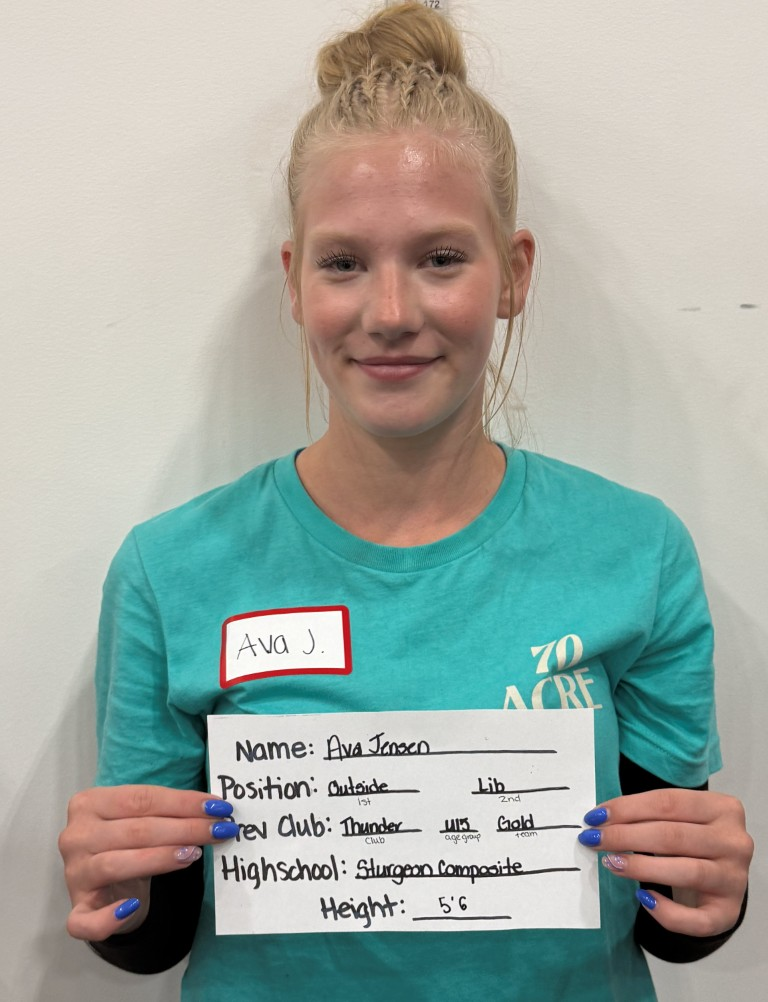 172
Ava J.
70
ACRE
Name: Ava Jensen
Position: Outside Lib
1st 2nd
Prev Club: Thunder U15 Gold
Club age group team
Highschool: Sturgeon Composite
Height: 5'6